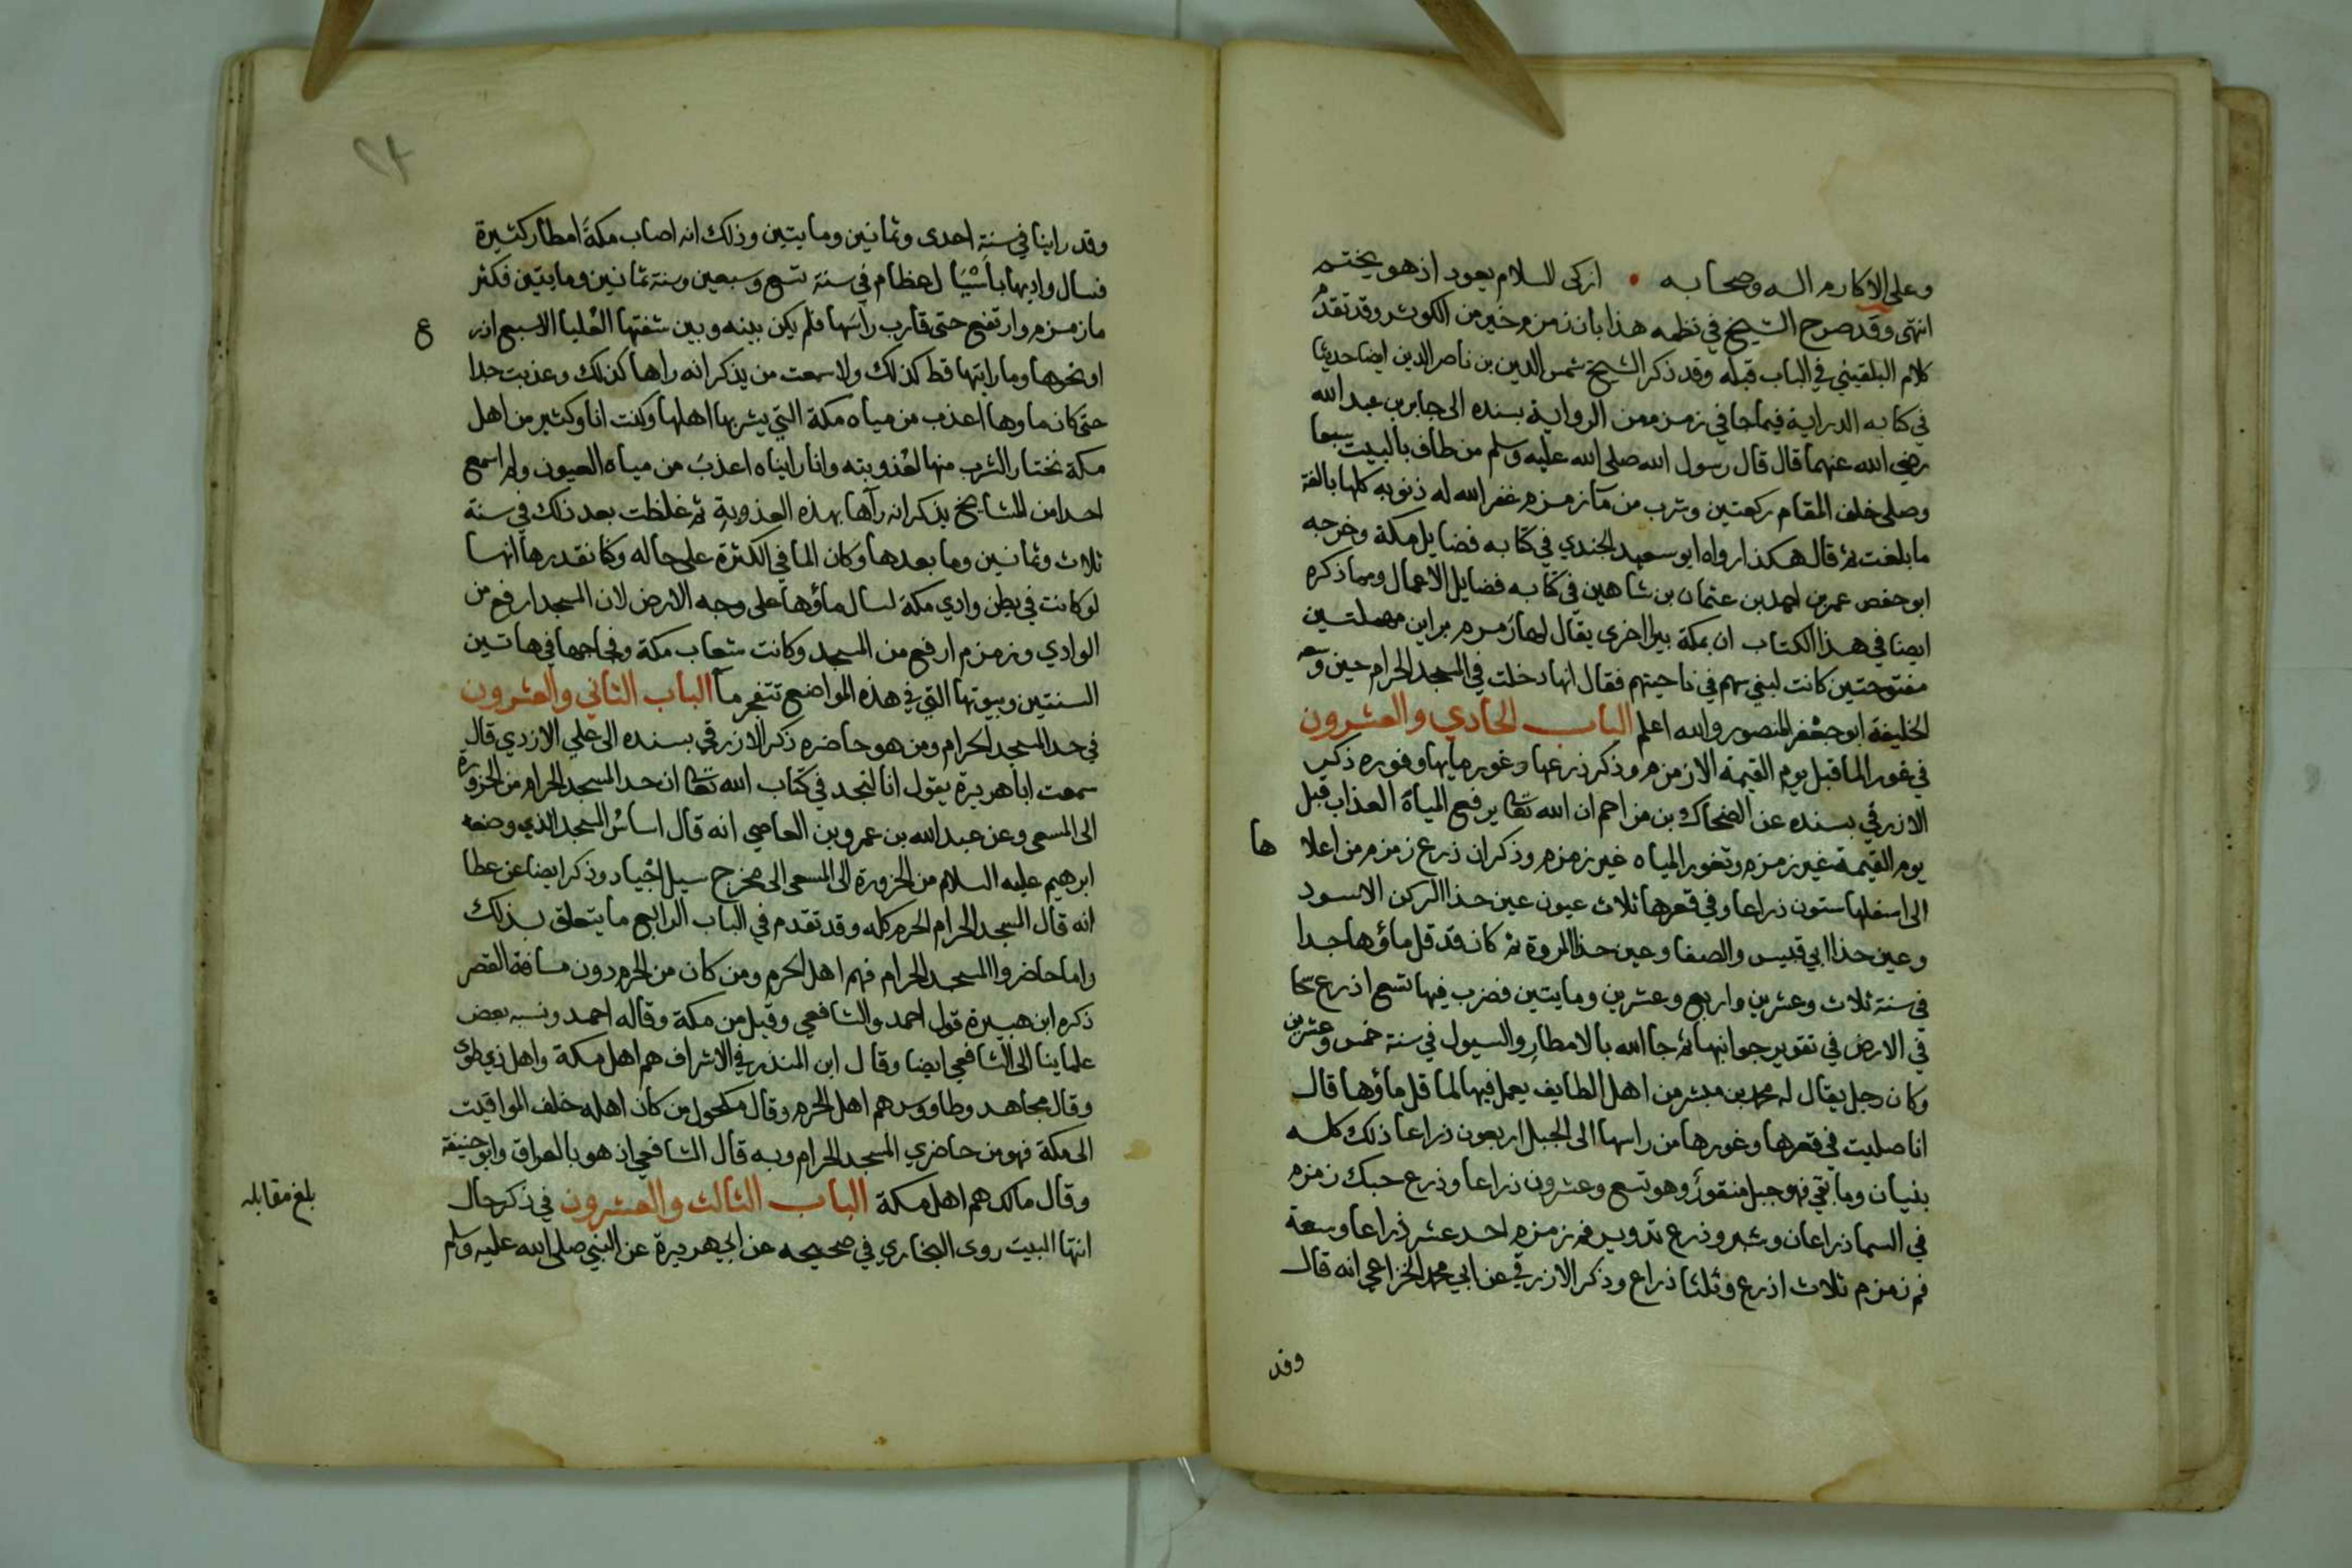 وعلى الاكارم اله وصحابه • ازكى السلام يعود اذ هو يختم
انتهى وقد صرح الشيخ في نظمه هذا بان زمزم خير من الكوثر وقد تقدم
كلام البلقيني في الباب قبله وقد ذكر الشيخ شمس الدين بن ناصر الدين ايضا حديثا
في كتابه الدراية فيما جا في زمزم من الرواية بسنده الى جابر بن عبد الله
رضي الله عنهما قال قال رسول الله صلى الله عليه وسلم من طاف بالبيت سبعا
وصلى خلف المقام ركعتين وشرب من مآ زمزم غفر الله له ذنوبه كلها بالغة
ما بلغت ثم قال هكذا رواه ابو سعيد الجندي في كتابه فضايل مكة وخرجه
ابو حفص عمر بن احمد بن عثمان بن شاهين في كتابه فضايل الاعمال ومما ذكره
ايضا في هذا الكتاب ان بمكة بيرا اخرى يقال لها زمزم براين مهملتين
مفتوحتين كانت لبني سهم في ناحيتهم فقال انها دخلت في المسجد الحرام حين وسعه
الخليفة ابو جعفر المنصور والله اعلم الباب الحادي والعشرون
في غور الما قبل يوم القيمة الا زمزم وذكر ذرعها وغور مايها وفوره ذكر
الازرقي بسنده عن الضحاك بن مزاحم ان الله تعا يرفع المياه العذاب قبل
يوم القيمة غير زمزم وتغور المياه غير زمزم وذكر ان ذرع زمزم من اعلا
ها
الى اسفلها ستون ذراعا وفي قعرها ثلاث عيون عين حذا الركن الاسود
وعين حذا ابي قبيس والصفا وعين حذا المروة ثم كان قد قل ماؤها جدا
في سنة ثلاث وعشرين واربع وعشرين ومايتين فضرب فيها تسع اذرع سحا
في الارض في تقوير جوانبها ثم جا الله بالامطار والسيول في سنة خمس وعشرين
وكان رجل يقال له محمد بن مبشر من اهل الطايف يعمل فيها لما قل ماؤها قال
انا صليت في قعرها وغورها من راسها الى الجبل اربعون ذراعا ذلك كله
بنيان وما بقي فهو جبل منقور وهو تسع وعشرون ذراعا وذرع حبك زمزم
في السما ذراعان وشبر وذرع تدوير فم زمزم احد عشر ذراعا وسعة
فم زمزم ثلاث اذرع وثلثا ذراع وذكر الازرقي عن ابي محمد الخزاعي انه قال
وقد
وقد راينا في سنة احدى وثمانين ومايتين وذلك انه اصاب مكة امطار كثيرة
فسال واديها باسيال عظام في سنة تسع وسبعين وسنة ثمانين ومايتين فكثر
ما زمزم وارتفع حتى قارب راسها فلم يكن بينه وبين شفتها العليا الا سبع اذر
ع
او نحوها وما رايتها قط كذلك ولا سمعت من يذكر انه راها كذلك وعذبت جدا
حتى كان ماوها اعذب من مياه مكة التي يشربها اهلها وكنت انا وكثير من اهل
مكة نختار الشرب منها لعذوبته وانا رايناه اعذب من مياه العيون ولم اسمع
احدا من المشايخ يذكر انه رآها بهذه العذوبة ثم غلظت بعد ذلك في سنة
ثلاث وثمانين وما بعدها وكان الما في الكثرة على حاله وكنا نقدرها انها
لو كانت في بطن وادي مكة لسال ماؤها على وجه الارض لان المسجد ارفع من
الوادي وزمزم ارفع من المسجد وكانت شعاب مكة وفجاجها في هاتين
السنتين وبيوتها التي في هذه المواضع تتفجر مآ الباب الثاني والعشرون
في حد المسجد الحرام ومن هو حاضره ذكر الازرقي بسنده الى علي الازدي قال
سمعت ابا هريرة يقول انا لنجد في كتاب الله تعا ان حد المسجد الحرام من الحزورة
الى المسعى وعن عبد الله بن عمرو بن العاصي انه قال اساس المسجد الذي وضعه
ابرهيم عليه السلام من الحزورة الى المسعى الى مخرج سيل اجياد وذكر ايضا عن عطا
انه قال المسجد الحرام الحرم كله وقد تقدم في الباب الرابع ما يتعلق بذلك
واما حاضروا المسجد الحرام فهم اهل الحرم ومن كان من الحرم دون مسافة القصر
ذكره ابن هبيرة قول احمد والشافعي وقيل من مكة وقاله احمد ونسبه بعض
علماينا الى الشافعي ايضا وقال ابن المنذر في الاشراف هم اهل مكة واهل ذي طوى
وقال مجاهد وطاووس هم اهل الحرم وقال مكحول من كان اهله خلف المواقيت
الى مكة فهو من حاضري المسجد الحرام وبه قال الشافعي اذ هو بالعراق وابو حنيفة
وقال مالك هم اهل مكة الباب الثالث والعشرون في ذكر حال
بلغ مقابله
انتها البيت روى البخاري في صحيحه عن ابي هريرة عن النبي صلى الله عليه وسلم